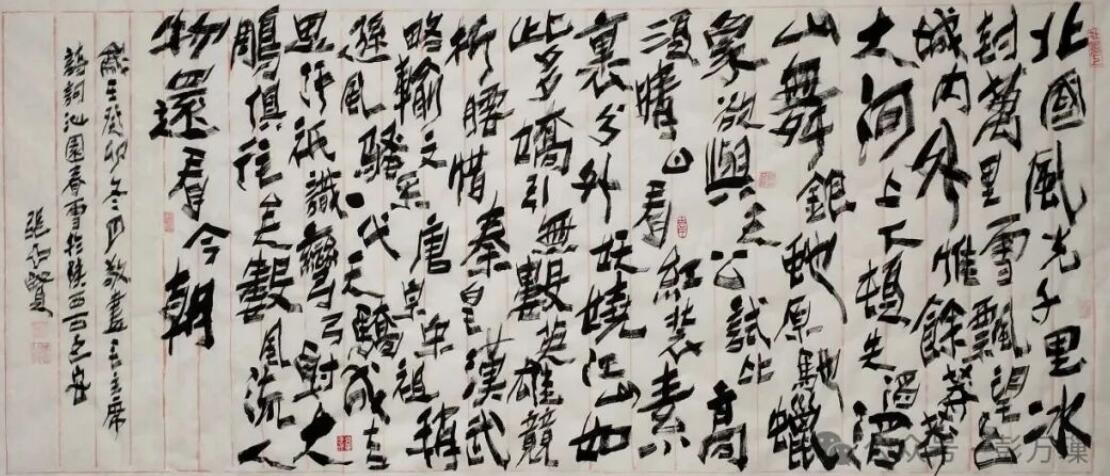 北國風光千里冰
封萬里雪飄望長
城内外惟餘莽莽
大河上下頓失滔滔
山舞銀蛇原馳蠟
象欲與天公試比高
須晴日看紅裝素
裹分外妖嬈江山如
此多嬌引無數英雄競
折腰惜秦皇漢武
略輸文采唐宗宋祖稍
遜風騷一代天驕成吉
思汗祇識彎弓射大
鵰俱往矣數風流人
物還看今朝
歲在癸卯冬月敬書毛主席
詩詞沁園春雪於陝西
張
公众号·彭万